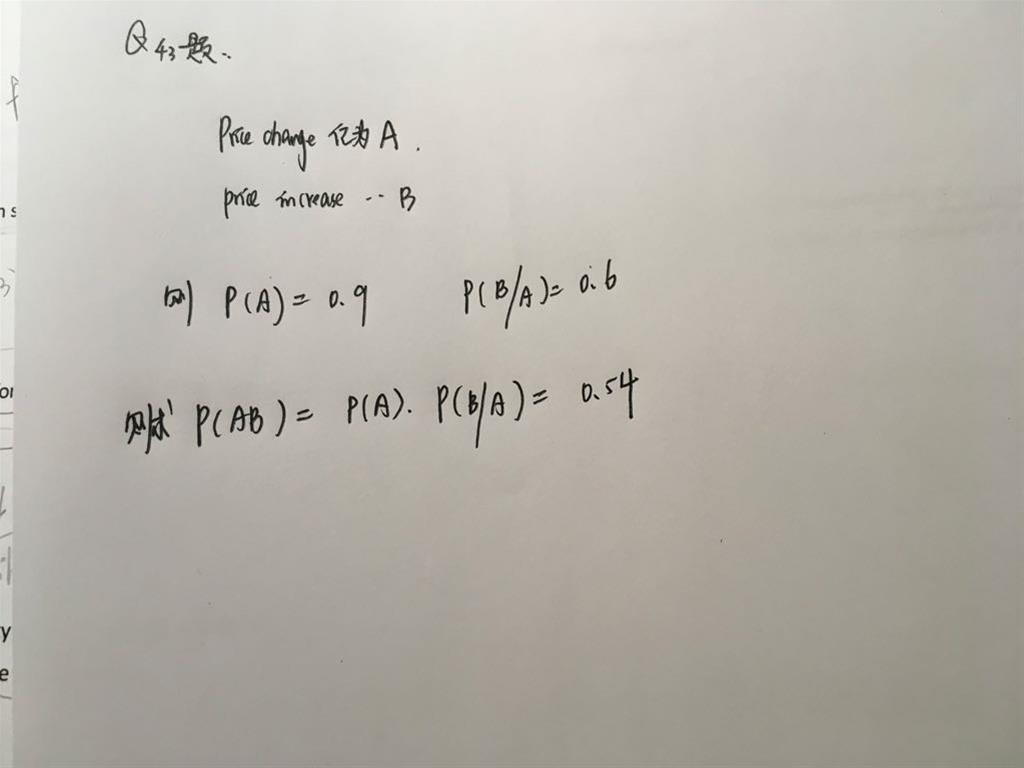 Q43题.
Price change 亿为 A.
price increase -- B
则 P(A) = 0.9 P(B/A) = 0.6
则求 P(AB) = P(A). P(B/A) = 0.54